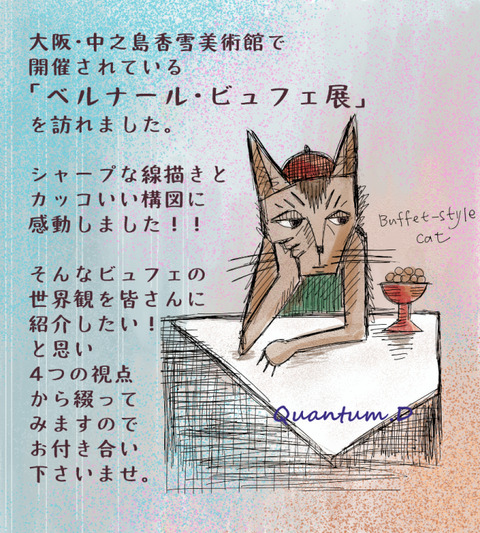 大阪・中之島香雪美術館で
開催されている
「ベルナール・ビュフェ展」
を訪れました。
シャープな線描きと
カッコいい構図に
感動しました！！
そんなビュフェの
世界観を皆さんに
紹介したい！
と思い
4つの視点
から綴って
みますので
お付き合い
下さいませ。
Buffet-style
cat
Quantum.D